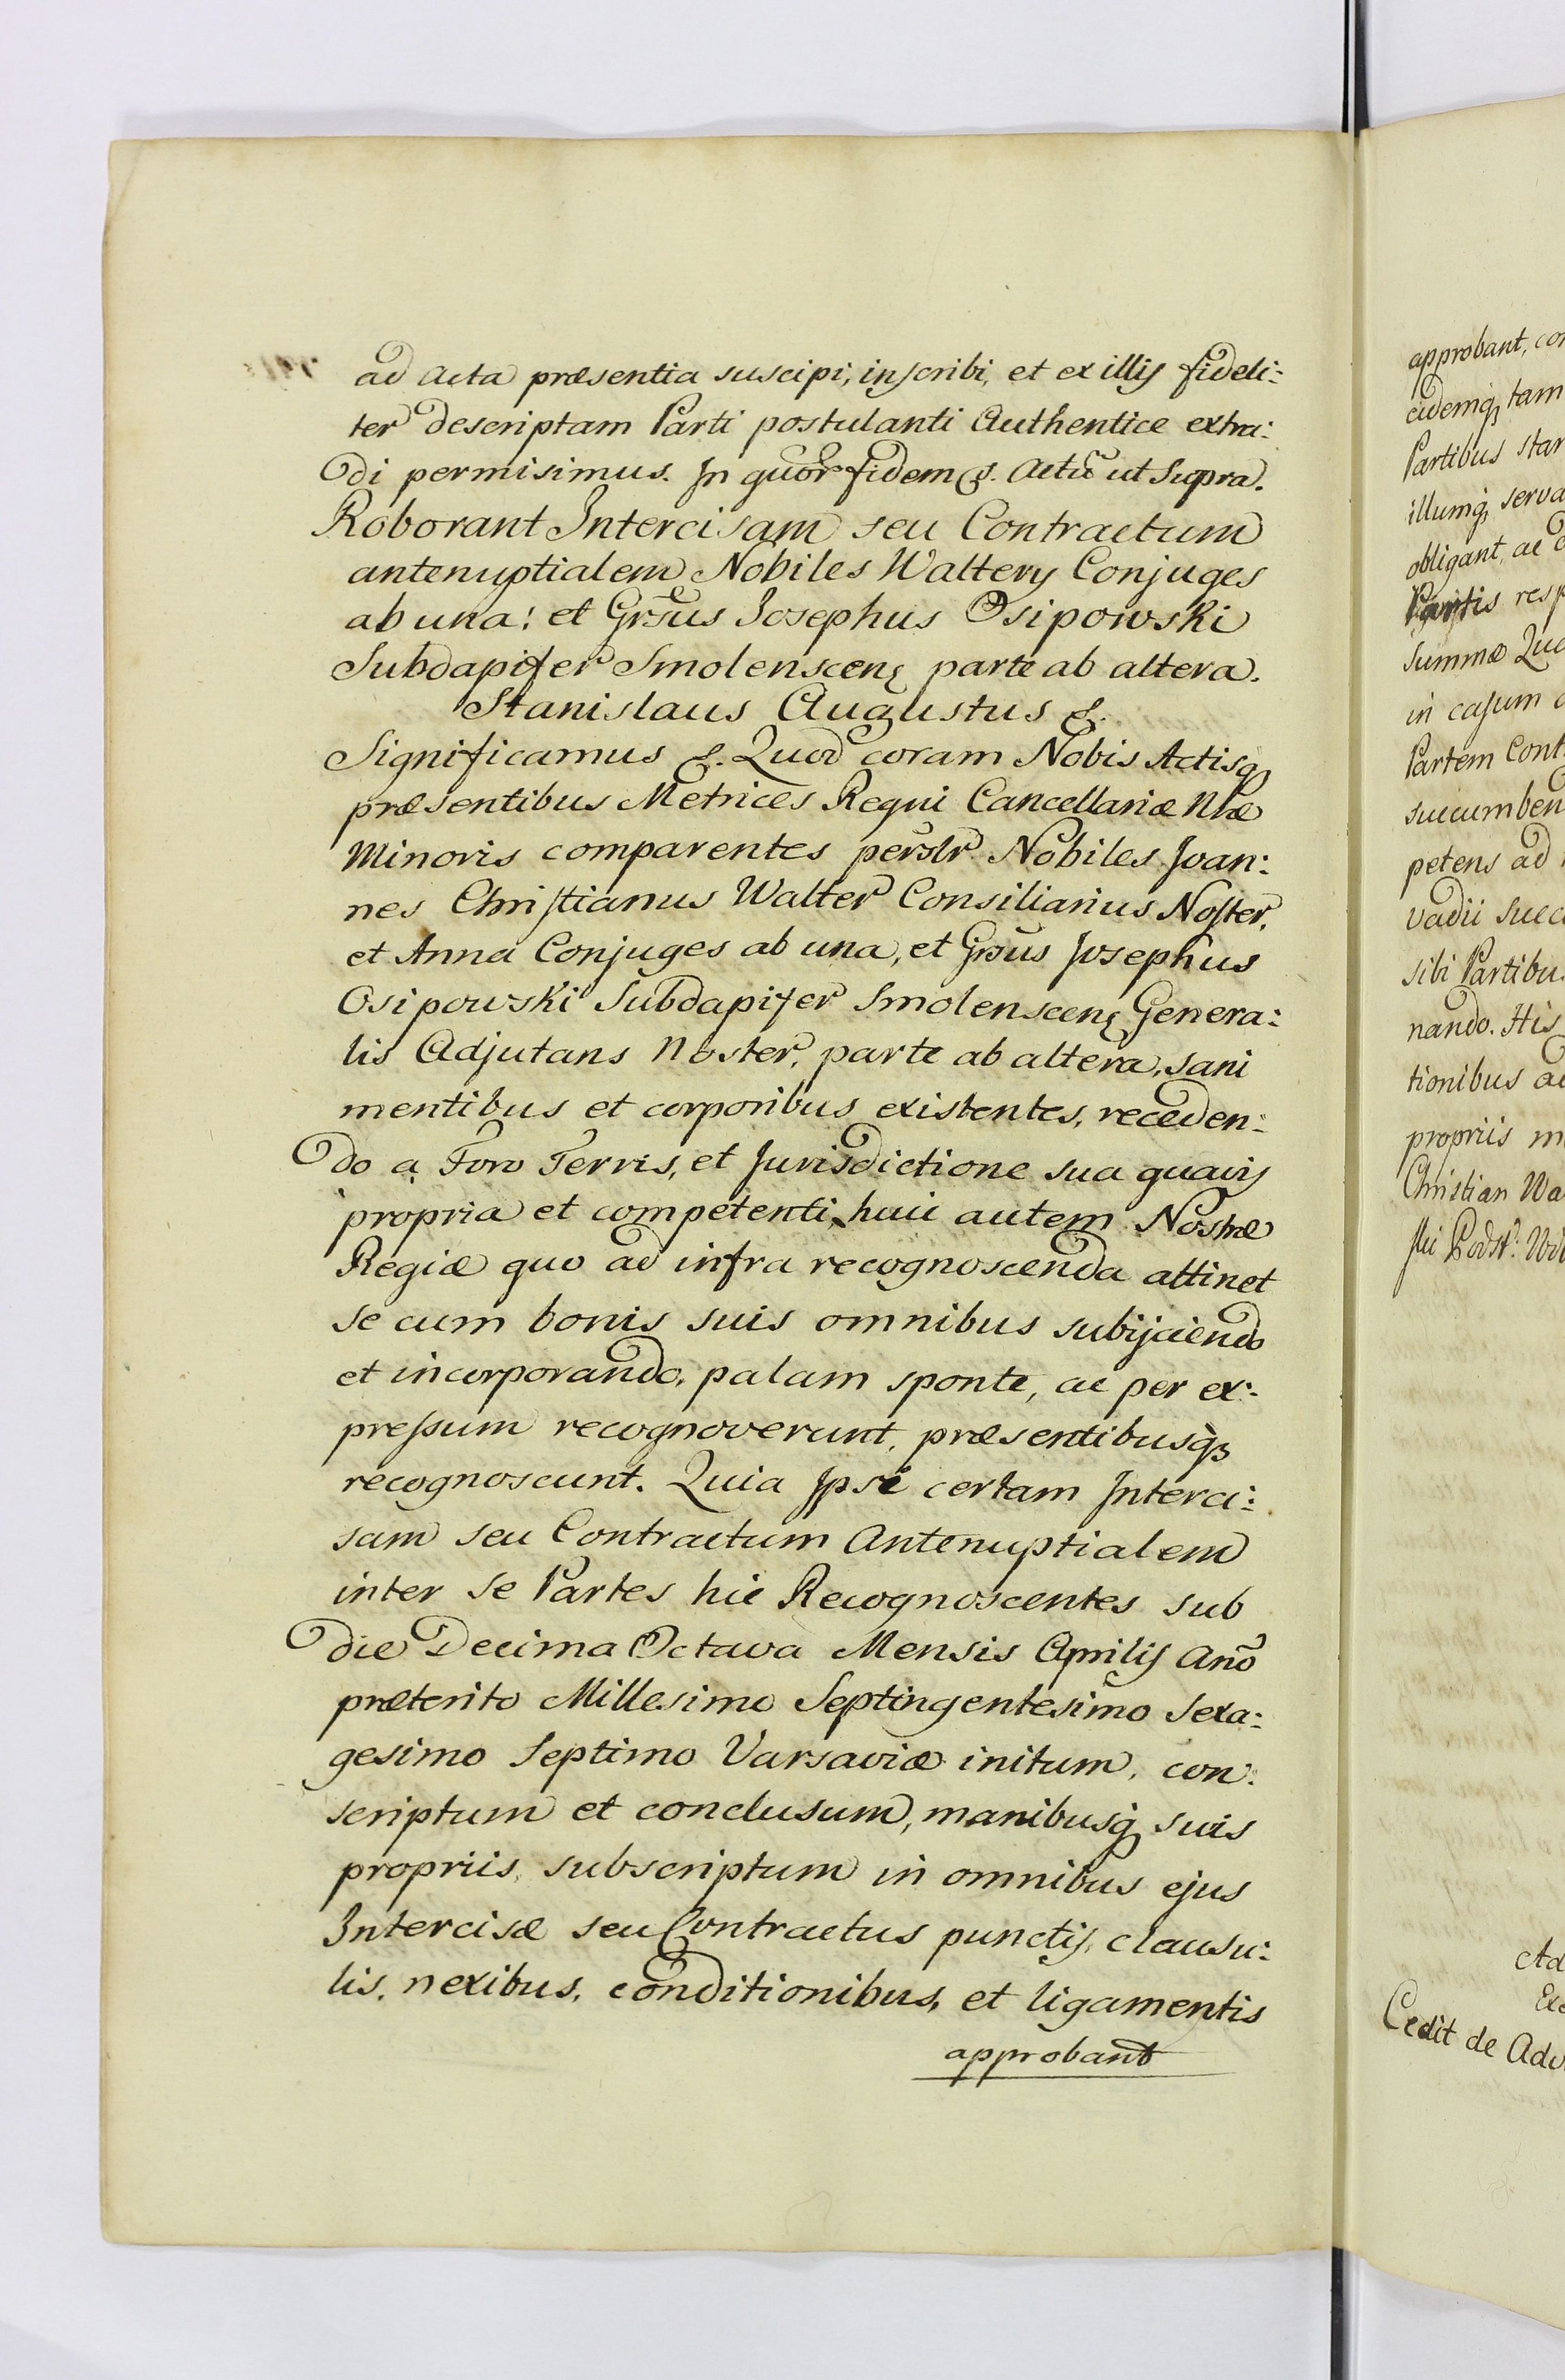 ad Acta præsentia suscipi, inscribi, et ex illis fideli:
ter descriptam Parti postulanti Authentice extra:
di permisimus. In quor fidem &. Actũ ut Supra.
Roborant Intercisam seu Contractum
antenuptialem Nobiles Waltery Conjuges
ab una: et Grosus Josephus Osipowski
Subdapifer Smolenscenę parte ab altera.
Stanislaus Augustus &.
Significamus &. Quod coram Nobis Actisq
præsentibus Metrices Regni Cancellariæ Nræ
Minoris comparentes persolr Nobiles Joan:
nes Christianus Walter Consiliarius Noster,
et Anna Conjuges ab una, et Grosus Josephus
Osipowski Subdapifer Smolenscenę Genera:
lis Adjutans Noster, parte ab altera, sani
mentibus et corporibus existentes, receden:
do a Foro Terris, et Jurisdictione sua quavis
propria et competenti, huic autem Nostræ
Regiæ quo ad infra recognoscenda attinet
se cum bonis suis omnibus subijciendo
et incorporando, palam sponte, ac per ex:
pressum recognoverunt, præsentibusq3
recognoscunt. Quia Ipsi certam Interci:
sam seu Contractum Antenuptialem
inter se Partes hic Recognoscentes sub
die Decima Octava Mensis Aprilis Anõ
præterito Millesimo Septingentesimo Sexa:
gesimo Septimo Varsaviæ initum, con:
scriptum et conclusum, manibusq suis
propriis subscriptum in omnibus ejus
Intercisæ seu Contractus punctis, clausu:
lis, nexibus, conditionibus, et ligamentis
approbant
approbant, con
eidemq tam
Partibus star
illumq serva
obligant, ac
Partis resp
Summæ Qu
in casum
Partem Cont
succumben
petens ad
vadii succ
sibi Partibu
nando. His
tionibus ac
propriis m
Christian Wa
ski Podst: Wo
Ad
Cedit de Adv